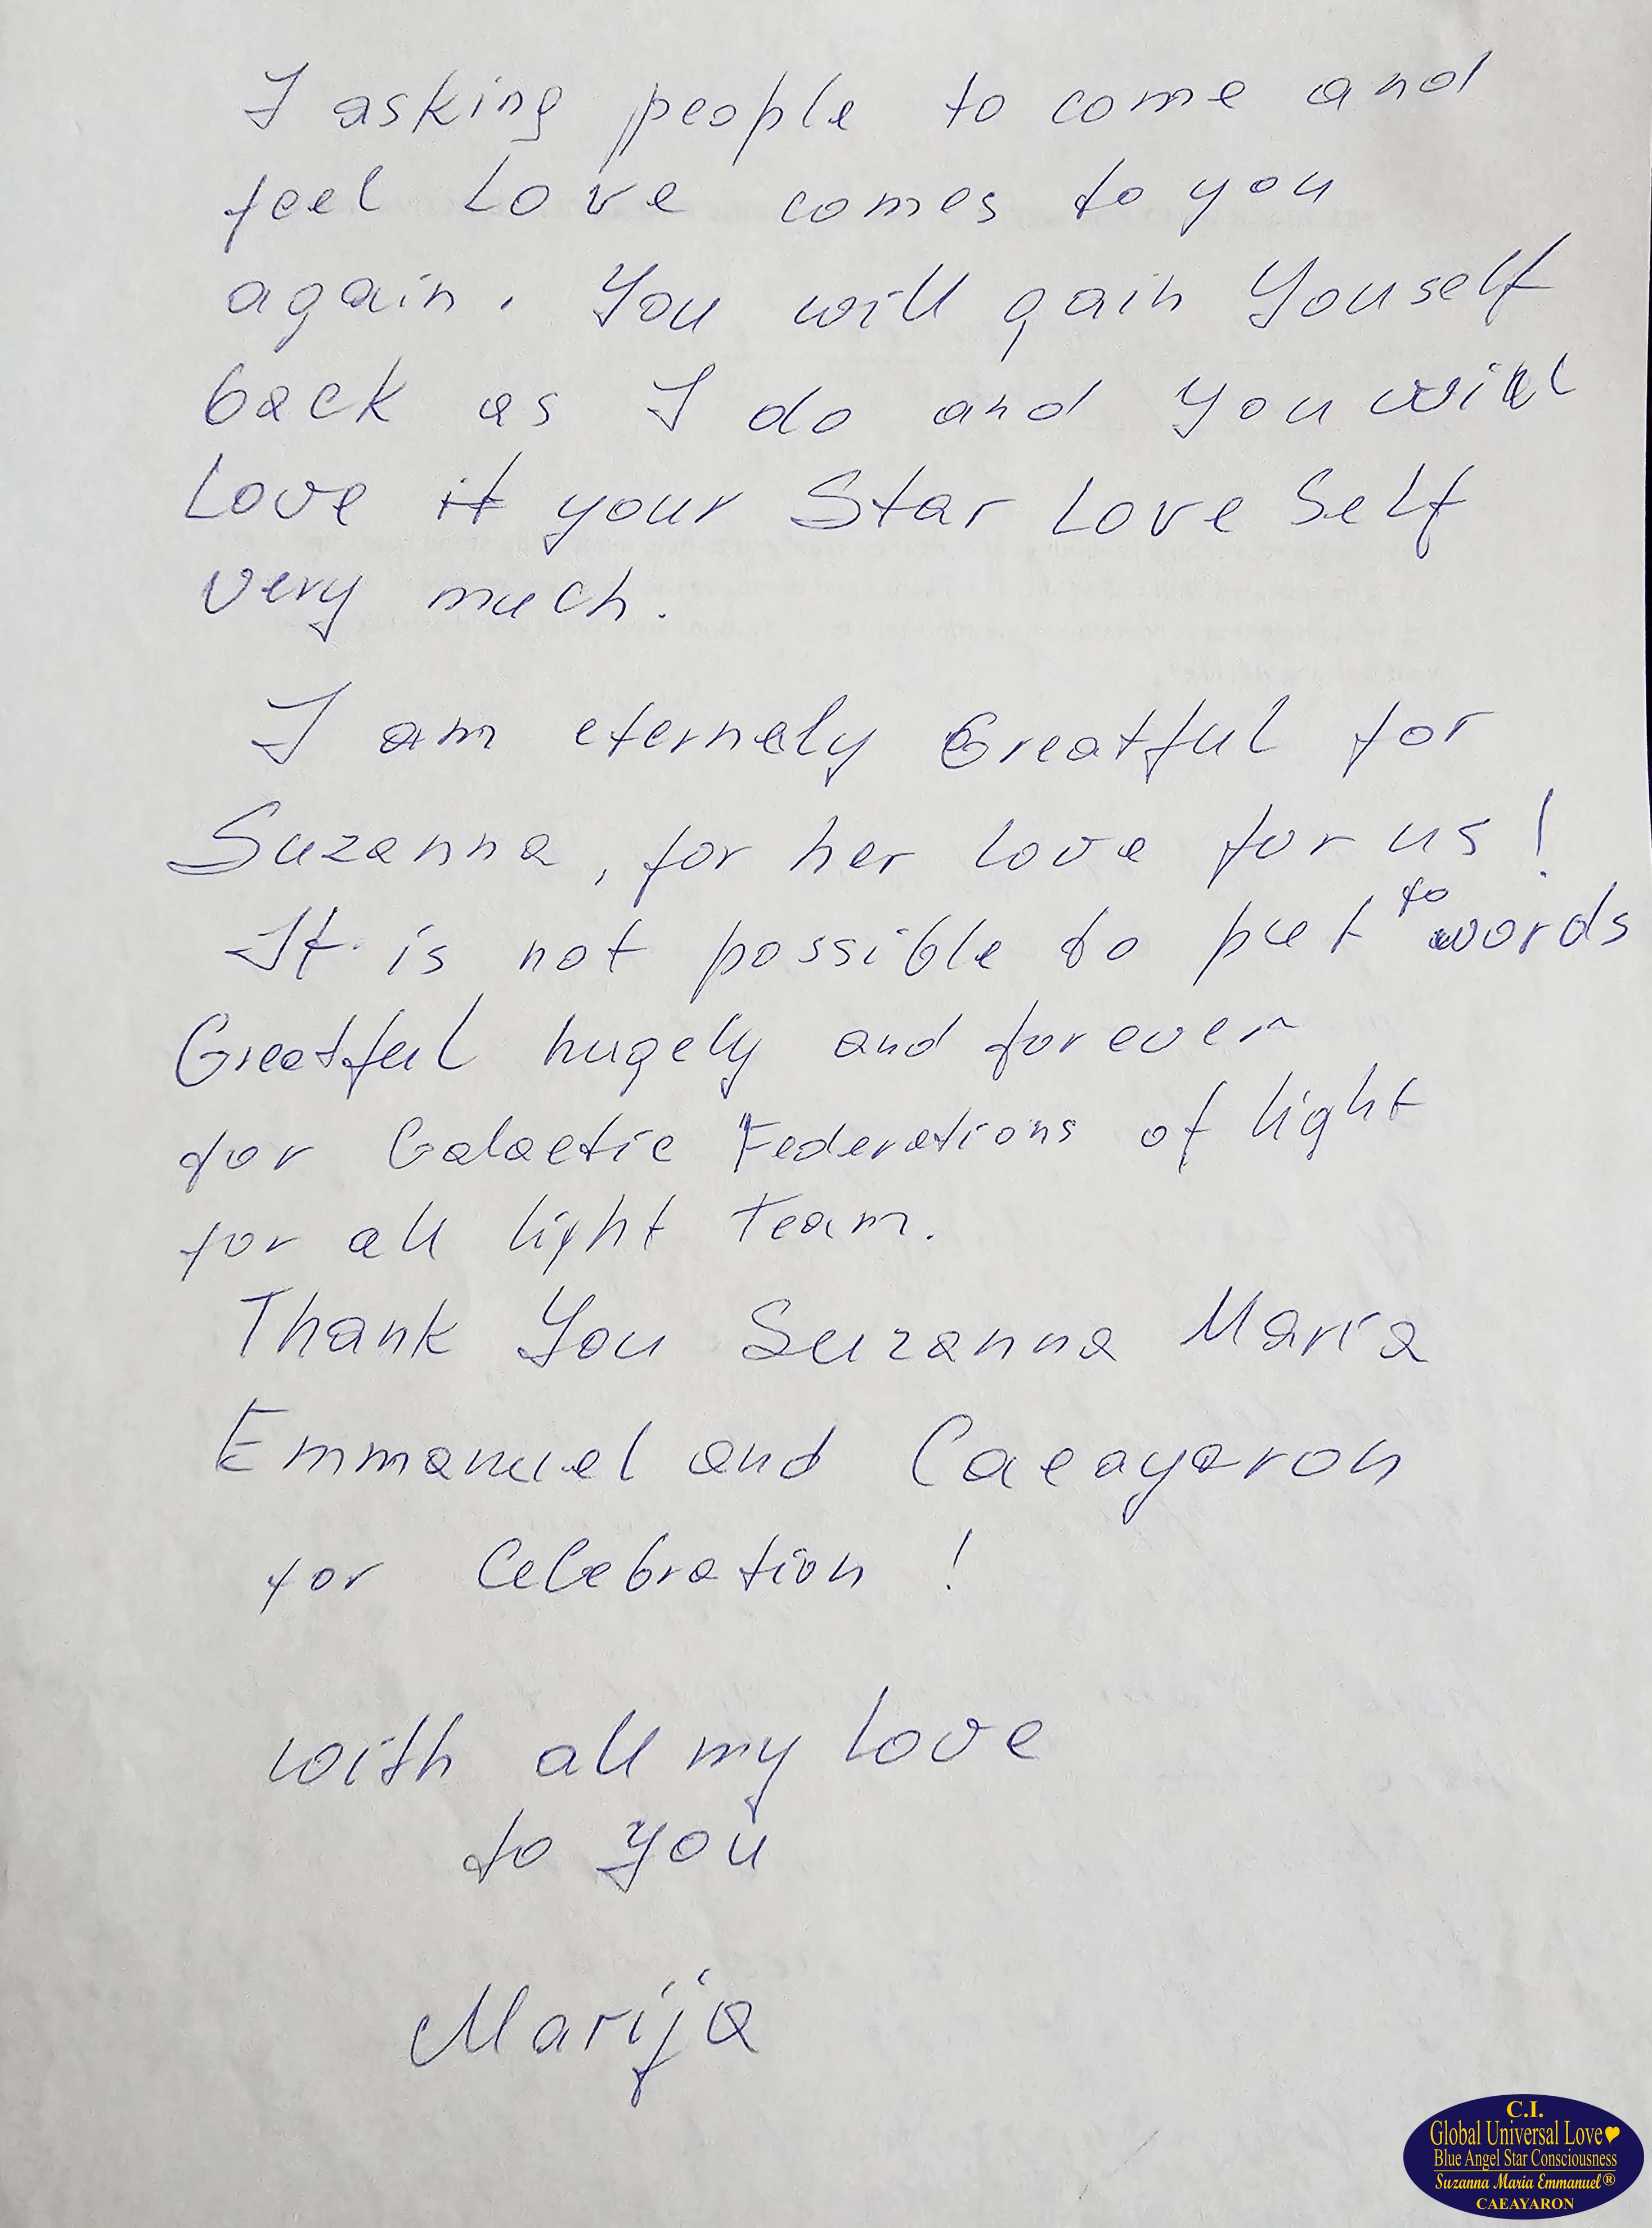 I asking people to come and
feel Love comes to you
again. You will gain Youself
back as I do and you will
Love it your Star Love Self
very much.
I am eternaly Greatful for
Suzanna, for her love for us!
It is not possible to put to words
Greatful hugely and forever
for Galactic Federations of light
for all light Team.
Thank You Suzanna Maria
Emmanuel and Caeayaron
for Celebration!
with all my love
to you
Marija
C.I.
Global Universal Love♥
Blue Angel Star Consciousness
Suzanna Maria Emmanuel®
CAEAYARON